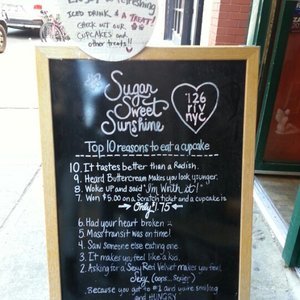 Refreshing
ICED DRINK, & A TREAT!
CHECK OUT OUR
CUPCAKES AND
other treats!!
Sugar
Sweet
Sunshine
126
riv
nyc
Top 10 reasons to eat a cupcake
10. IT tastes better than a Radish.
9. Heard Buttercream Makes you look younger.
8. Woke UP and said "I'm Worth it!"
7. Won $5.00 on a Scratch ticket and a cupcake is
Only 1.75
6. Had your heart broken
5. Mass transit was on time!
4. Saw someone else eating one.
3. It makes you feel like a kid.
2. Asking for a Sexy Red Velvet makes you feel
Sexy. (oops...Sexier)
Because you got to #1 and were smiling
and HUNGRY